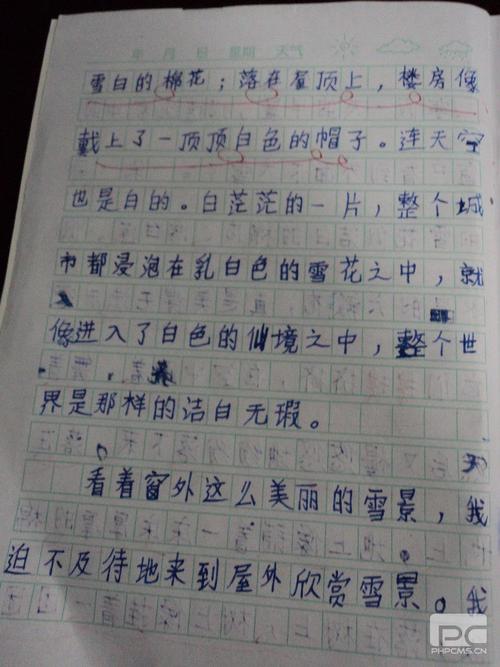 年 月 日 星期 天气
雪白的棉花；落在屋顶上，楼房像
戴上了一顶顶白色的帽子。连天空
也是白的。白茫茫的一片，整个城
市都浸泡在乳白色的雪花之中，就
像进入了白色的仙境之中，整个世
界是那样的洁白无瑕。
看着窗外这么美丽的雪景，我
迫不及待地来到屋外欣赏雪景。我
PC
PHPCMS.CN